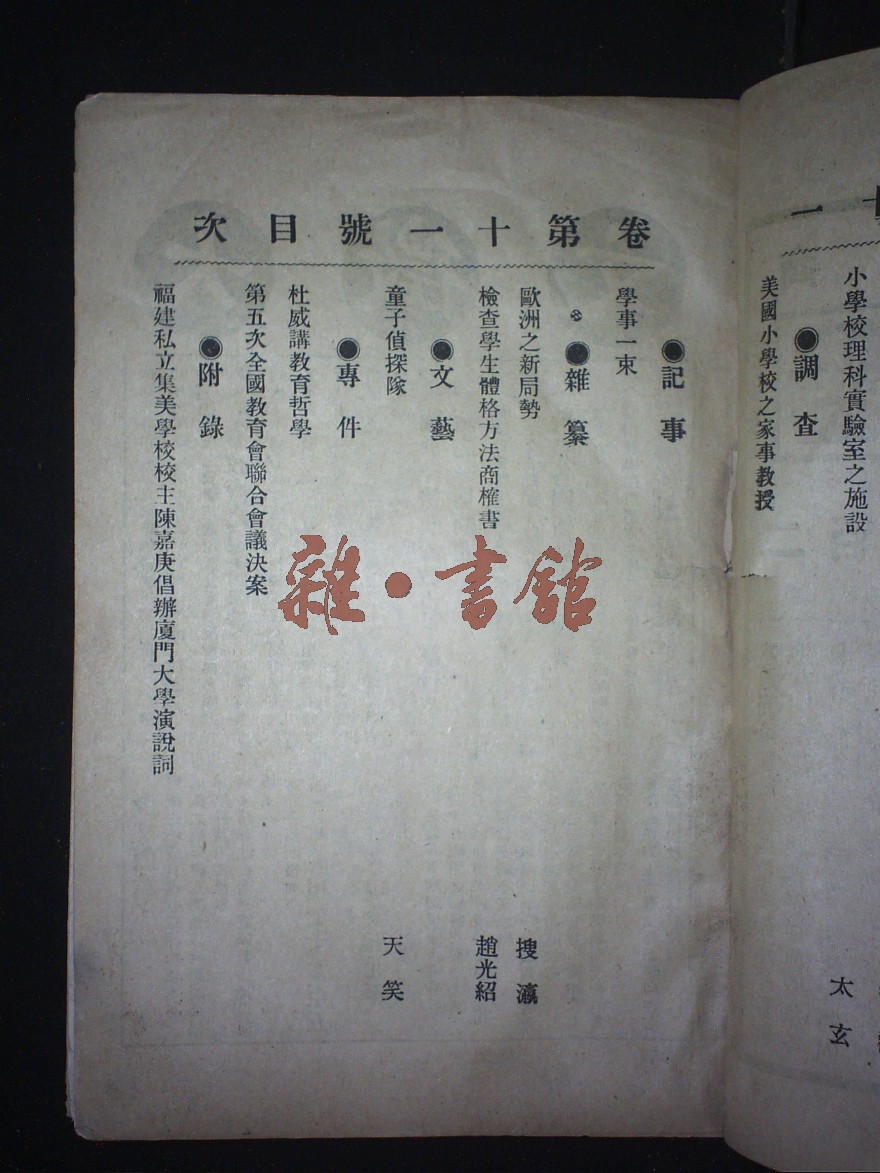 一
小學校理科實驗室之施設
太玄
◉調查
美國小學校之家事教授
卷第十一號目次
◉記事
學事一束
◉雜纂
歐洲之新局勢 搜瀛
檢查學生體格方法商榷書 趙光紹
◉文藝
童子偵探隊 天笑
◉專件
杜威講教育哲學
第五次全國教育會聯合會議決案
◉附錄
福建私立集美學校校主陳嘉庚倡辦廈門大學演說詞
雜·書館